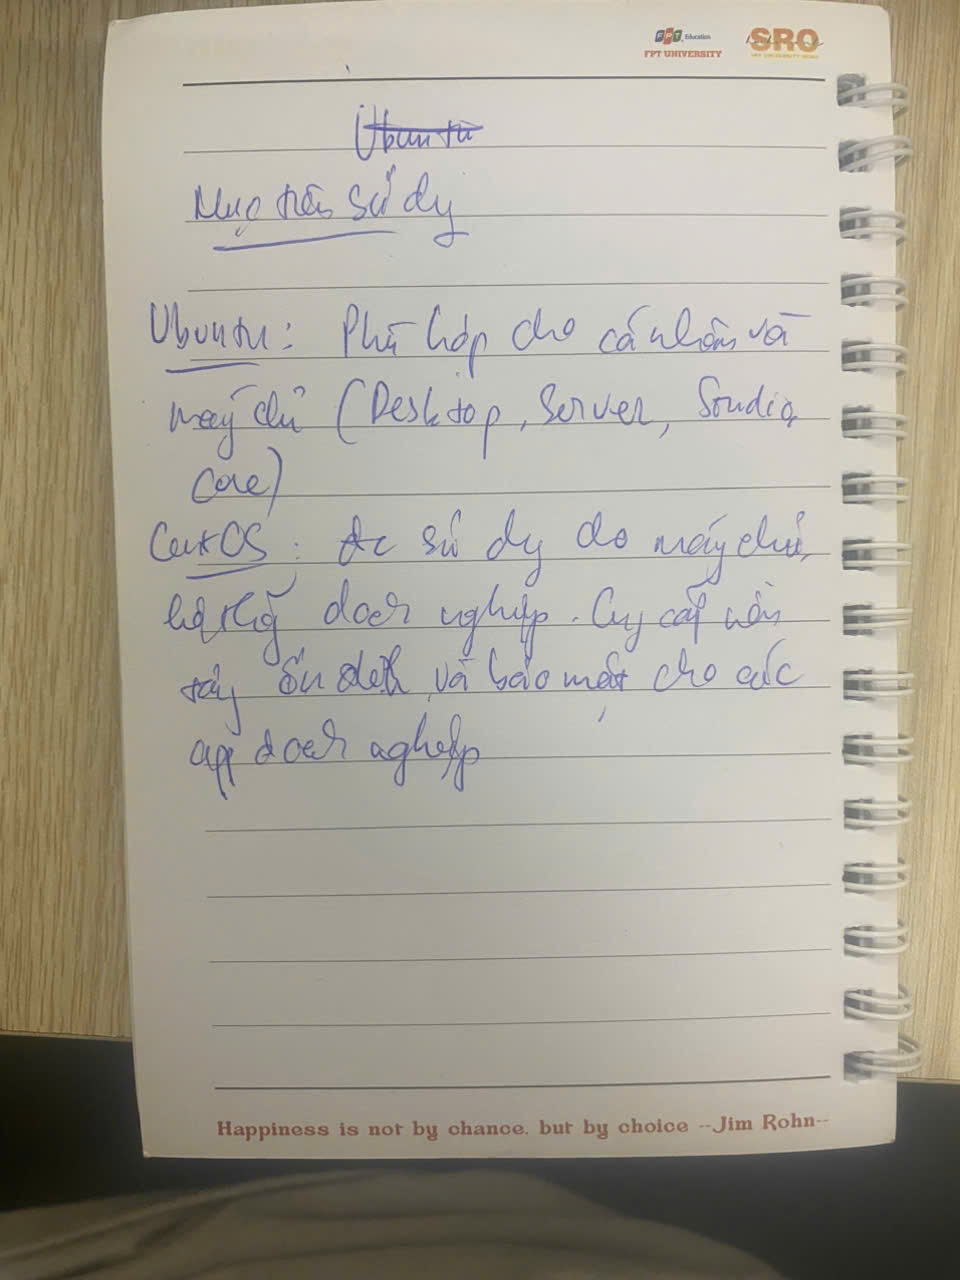 FPT Education
FPT UNIVERSITY
SRO
Ubuntu
Mục tiêu sử dg
Ubuntu: Phù hợp cho cá nhân và
máy chủ (Desktop, Server, Studio,
Core)
CentOS: đc sử dg cho máy chủ,
hệ thống doanh nghiệp. Cung cấp nền
tảng ổn định và bảo mật cho các
app doanh nghiệp
Happiness is not by chance. but by choice --Jim Rohn--